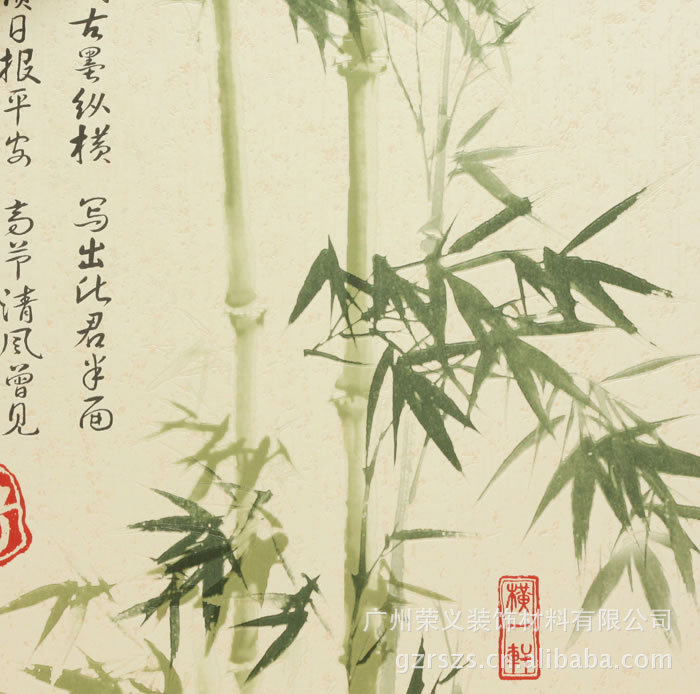 古墨纵横 写出此君半面
须日报平安 高节清风曾见
橫一軒
广州荣义装饰材料有限公司
gzrszs.cn.alibaba.com